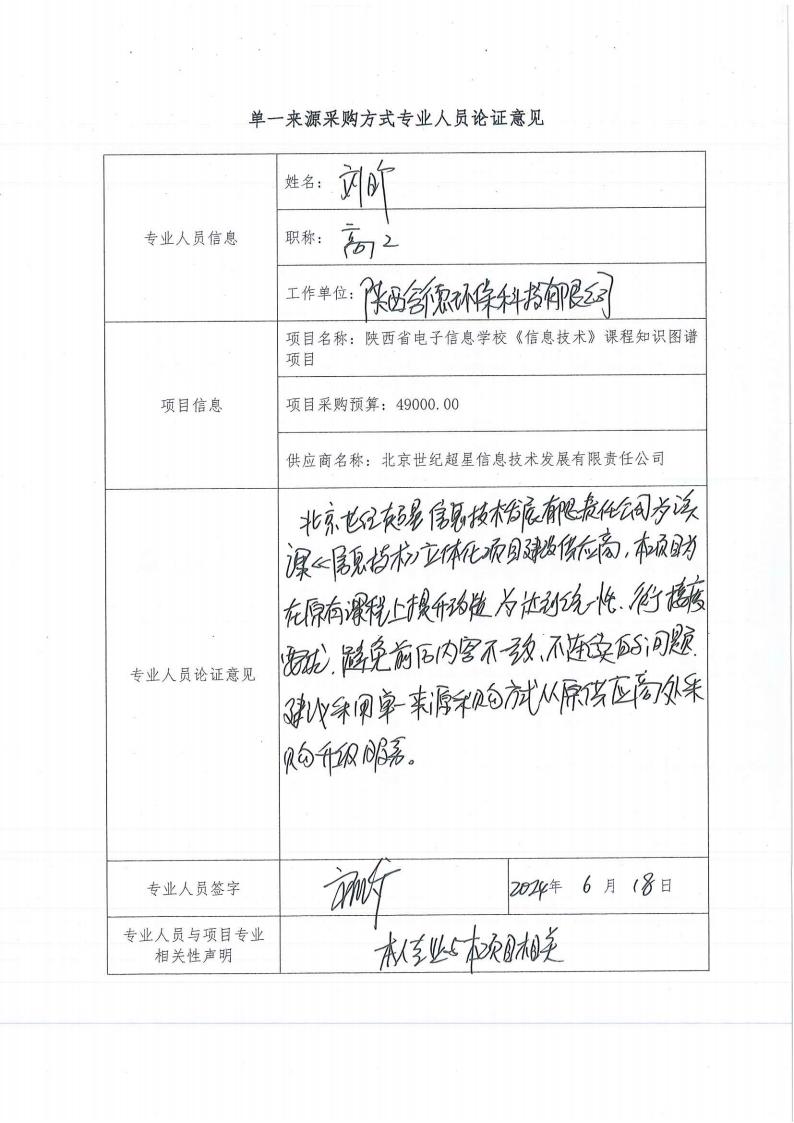 单一来源采购方式专业人员论证意见
专业人员信息
姓名：刘昕
职称：高工
工作单位：陕西舍德环保科技有限公司
项目信息
项目名称：陕西省电子信息学校《信息技术》课程知识图谱
项目
项目采购预算：49000.00
供应商名称：北京世纪超星信息技术发展有限责任公司
专业人员论证意见
北京世纪超星信息技术发展有限责任公司为该
课《信息技术》立体化项目建设供应商，本项目为
在原有课程上提升改造 为达到统一性、衔接度
要求，避免前后内容不一致、不连续的问题，
建议采用单一来源采购方式从原供应商处采
购升级服务。
专业人员签字
2024年 6 月 18日
专业人员与项目专业
相关性声明
本人专业与本项目相关